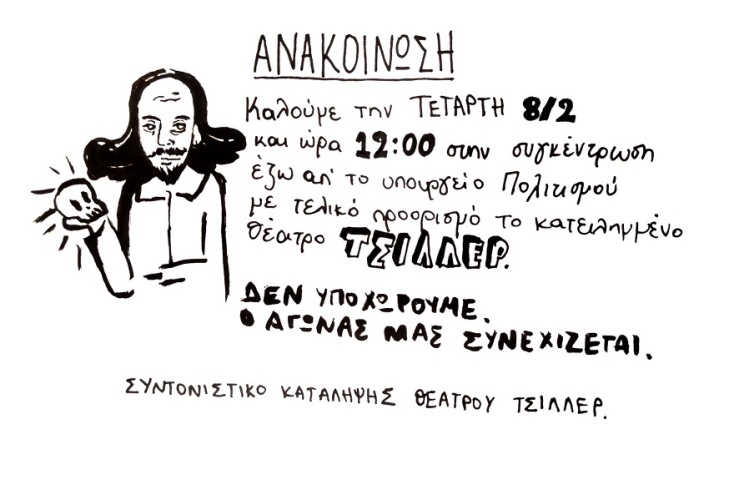 ΑΝΑΚΟΙΝΩΣΗ
Καλούμε την ΤΕΤΑΡΤΗ 8/2
και ώρα 12:00 στην συγκέντρωση
έξω απ' το υπουργείο Πολιτισμού
με τελικό προορισμό το κατειλημμένο
θέατρο ΤΣΙΛΛΕΡ.
ΔΕΝ ΥΠΟΧΩΡΟΥΜΕ.
Ο ΑΓΩΝΑΣ ΜΑΣ ΣΥΝΕΧΙΖΕΤΑΙ.
ΣΥΝΤΟΝΙΣΤΙΚΟ ΚΑΤΑΛΗΨΗΣ ΘΕΑΤΡΟΥ ΤΣΙΛΛΕΡ.